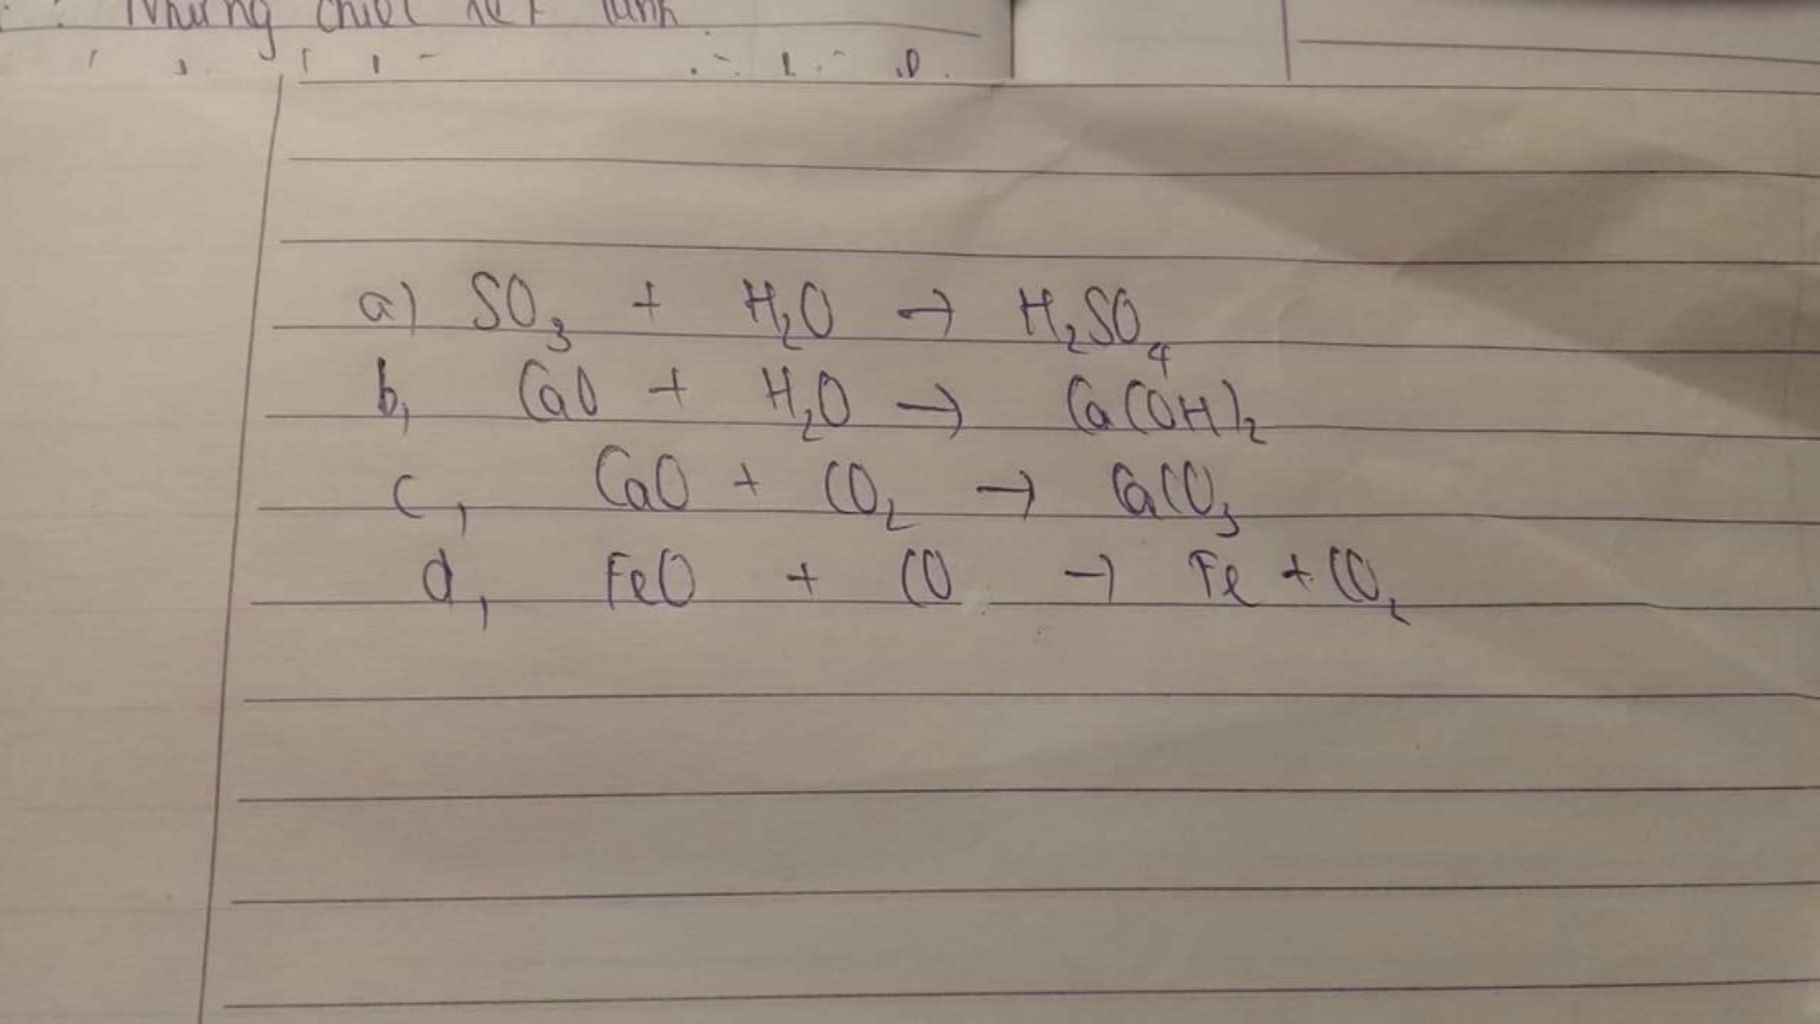 Những chiếc
a) SO₃ + H₂O → H₂SO₄
b, CaO + H₂O → Ca(OH)₂
c, CaO + CO₂ → CaCO₃
d, FeO + CO → Fe + CO₂